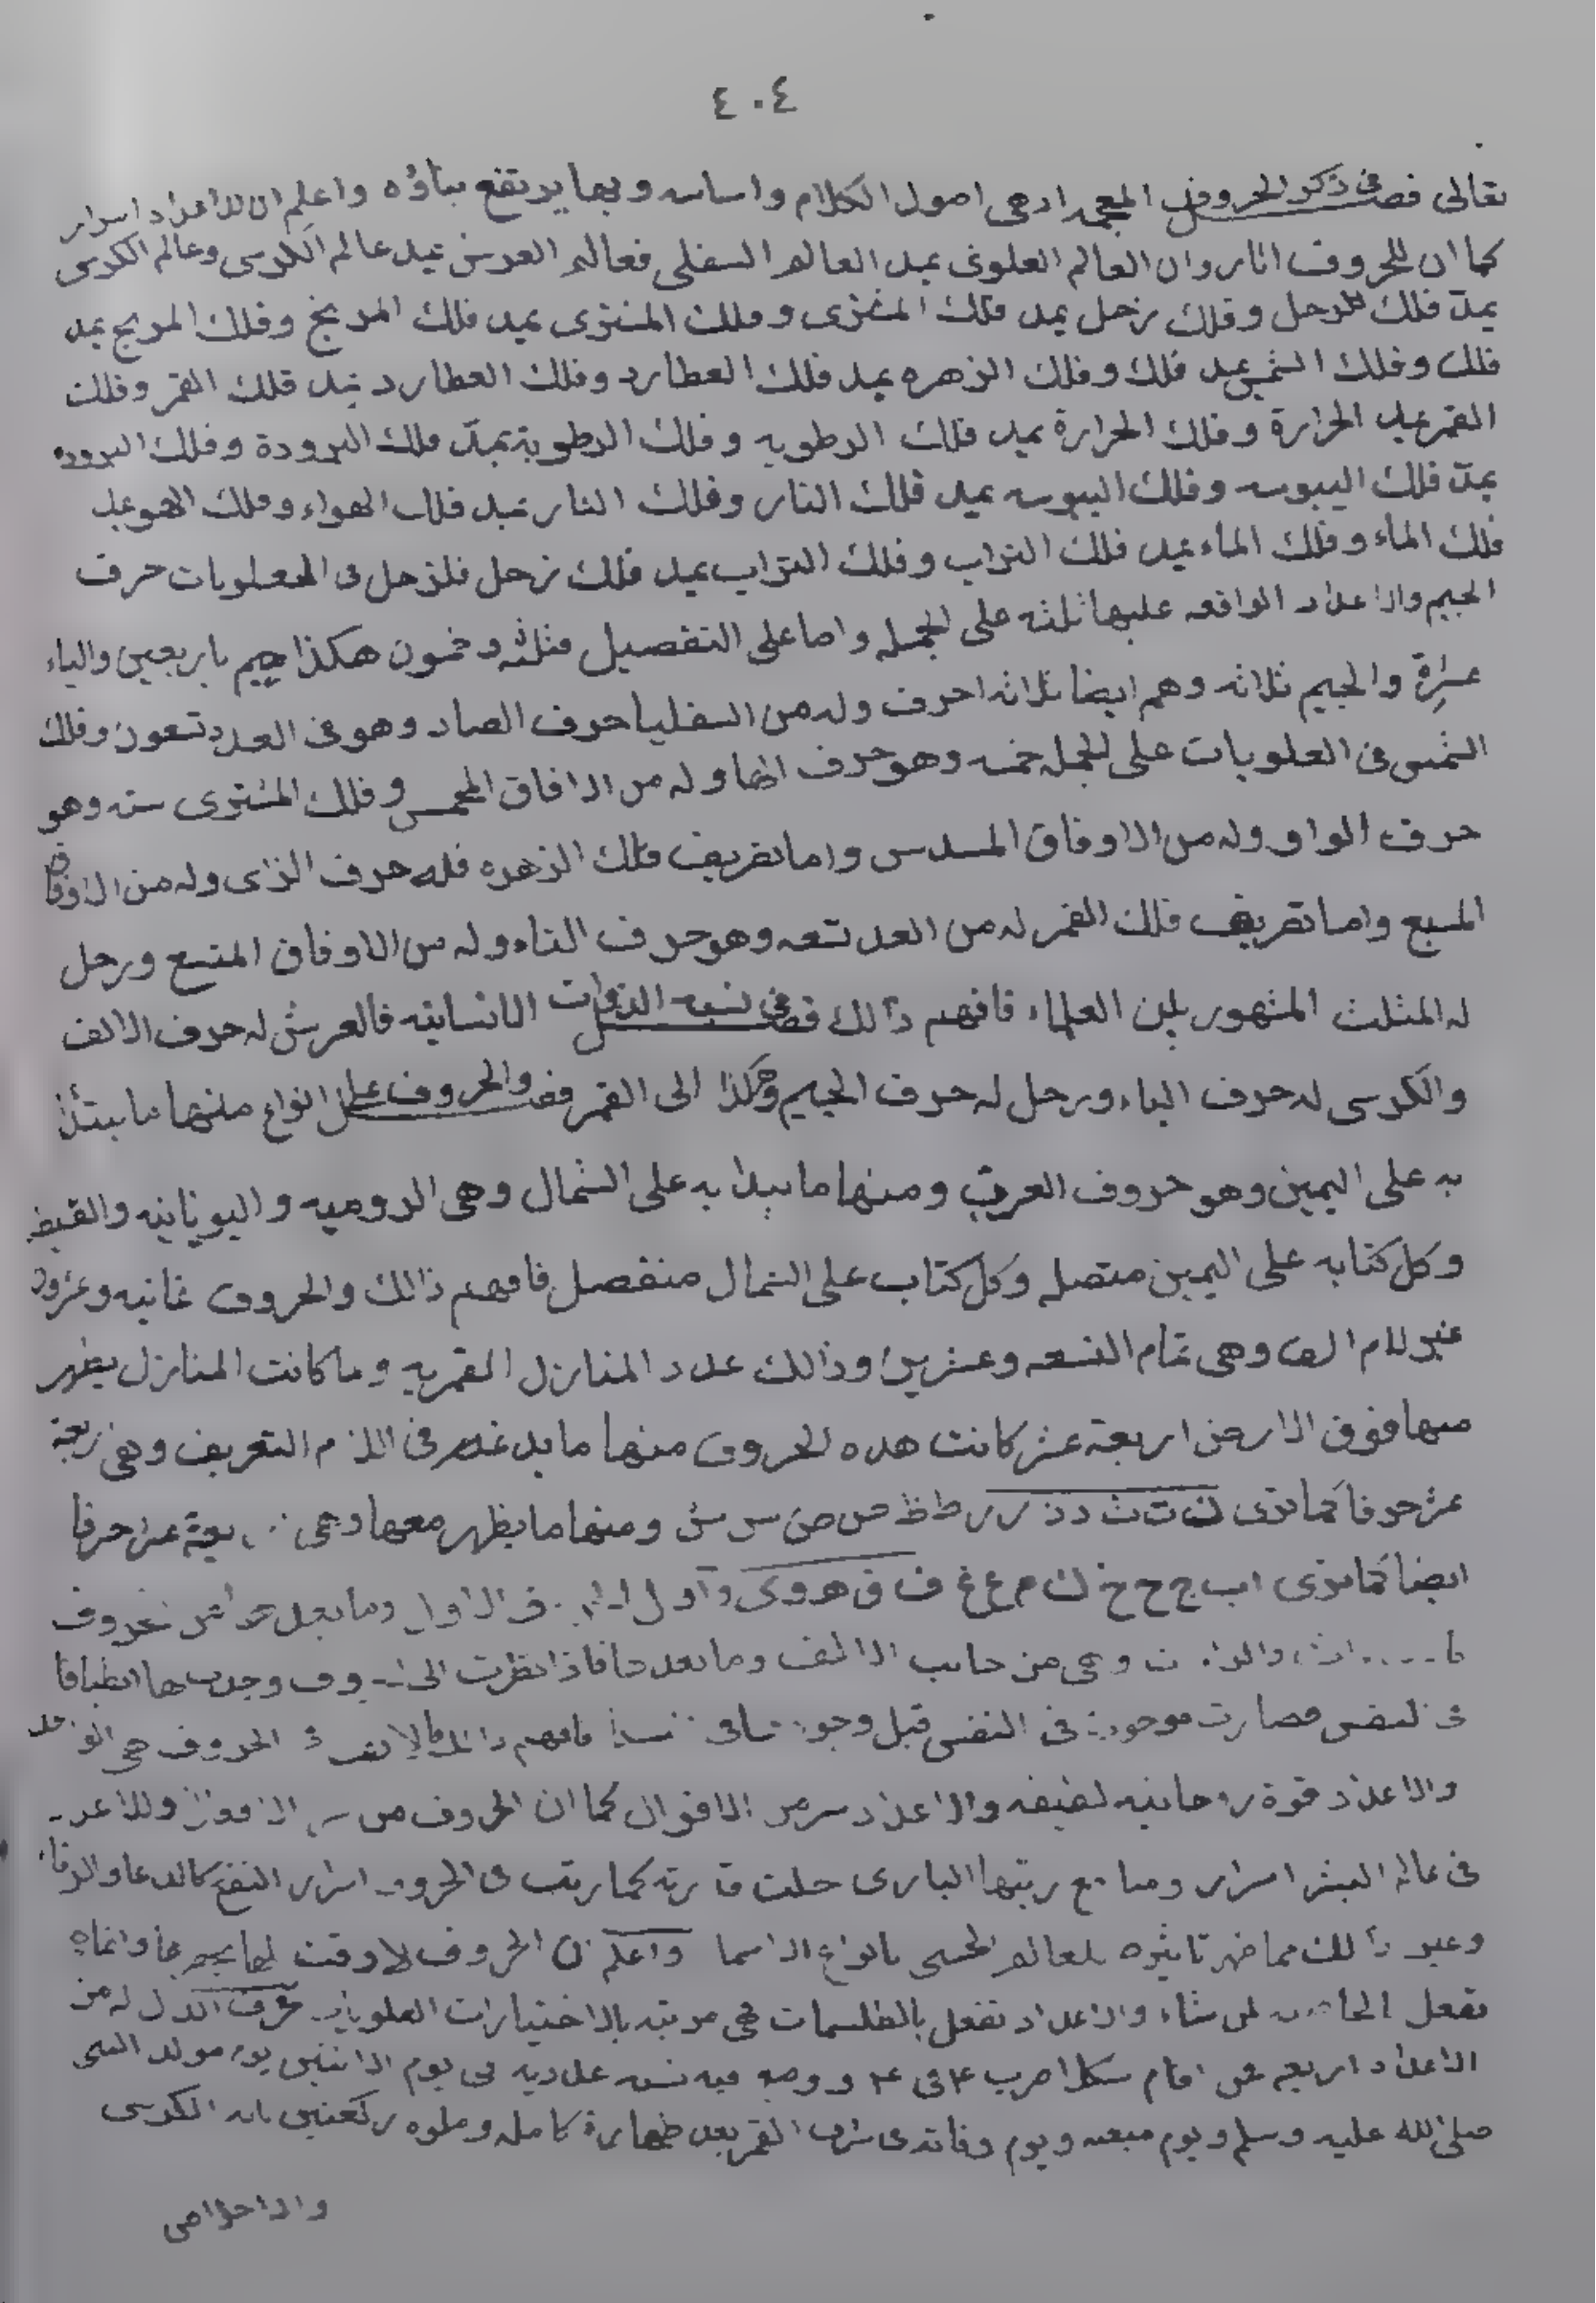 ٤٠٤
تعالى فصل في ذكر الحروف المعجم اذ هى اصول الكلام واساسه وبها يرتفع بناؤه واعلم ان للاعداد اسرار
كما ان للحروف اثار وان العالم العلوى يمد العالم السفلى فعالم العرش يمد عالم الكرسى وعالم الكرسى
يمدّ فلك زحل وفلك زحل يمد فلك المشترى وفلك المشترى يمد فلك المريخ وفلك المريخ يمد
فلك وفلك الشمس يمد فلك وفلك الزهره يمد فلك العطارد وفلك العطارد يمد فلك القمر وفلك
القمر يمد الحرارة وفلك الحرارة يمد فلك الرطوبه وفلك الرطوبة يمدّ فلك البرودة وفلك البروده
يمدّ فلك اليبوسه وفلك اليبوسه يمد فلك النار وفلك النار يمد فلك الهواء وفلك الهو يمد
فلك الماء وفلك الماء يمد فلك التراب وفلك التراب يمد فلك زحل فلزحل فى العلويات حرف
الجيم والاعداد الواقعه عليها ثلثه على الجمله واما على التفصيل فثلثه وخمسون هكذا جيم باربعين والياء
عشرة والجيم ثلاثه وهم ايضا ثلاثه احرف وله من السفليا حرف الصاد وهو فى العدد تسعون وفلك
الشمس فى العلويات على الجمله خمسه وهو حرف الها وله من الافاق المخمس وفلك المشترى سته وهو
حرف الواو وله من الاوفاق المسدس واما تعريف فلك الزهره فله حرف الزاى وله من الاوفاق
المسبع واما تعريف فلك القمر له من العدد تسعه وهو حرف الطاء وله من الاوفاق المتسع وزحل
له المثلث المشهور بين العلماء فافهم ذالك فصل فى نسبه الذوات الانسانيه فالعرش له حرف الالف
والكرسى له حرف الباء وزحل له حرف الجيم وهكذا الى القمر فصل والحروف على انواع منها ما يبتدا
به على اليمين وهو حروف العربيه ومنها ما يبدا به على الشمال وهى الروميه واليونانيه والقبطيه
وكل كتابه على اليمين متصله وكل كتاب على الشمال منفصل فافهم ذالك والحروف ثمانيه وعشرون
غير لام الف وهى تمام التسعه وعشرين وذالك عدد المنازل القمريه وما كانت المنازل يظهر
منها فوق الارض اربعة عشر كانت هذه الحروف منها ما يدغم فى اللام التعريف وهى اربعة
عشر حرفا كما ترى ن ت ث د ذ ر ز ط ظ ص ض س ش ومنها ما يظهر معها وهى اربعة عشر حرفا
ايضا كما ترى ا ب ج ح خ ك م ع غ ف ق ه و ى
وهى من جانب الالف وما بعدها فاذا نظرت الى وجدت انطباقا
فصارت موجوده فى النفس قبل فافهم الحروف هى
والاعداد قوة روحانيه لطيفه والاعداد سر من الاقوال كما ان الحروف من
فى عالم البشر اسرار ومنافع رتبها البارى جلت قدرته كما رتب فى الحروف اسرار النفع كالدعا والرقا
وغير ذالك مما ظهر تاثيره بالعالم الحسى بانواع الاسما واعلم ان الحروف لا وقت لها
تفعل لمن شاء والاعداد تفعل بالطلسمات فهى مرتبه بالاختيارات العلويات حرف الدال له من
الاعداد اربعه فمن اقام شكلا ضرب ٤ فى ٤ ووضع فيه نسبه عدديه فى يوم الاثنين يوم مولد النبى
صلى الله عليه وسلم ويوم مبعثه ويوم وفاته فى شرف القمر بعد طهارة كامله وصلوه ركعتين بايه الكرسى
والاخلاص